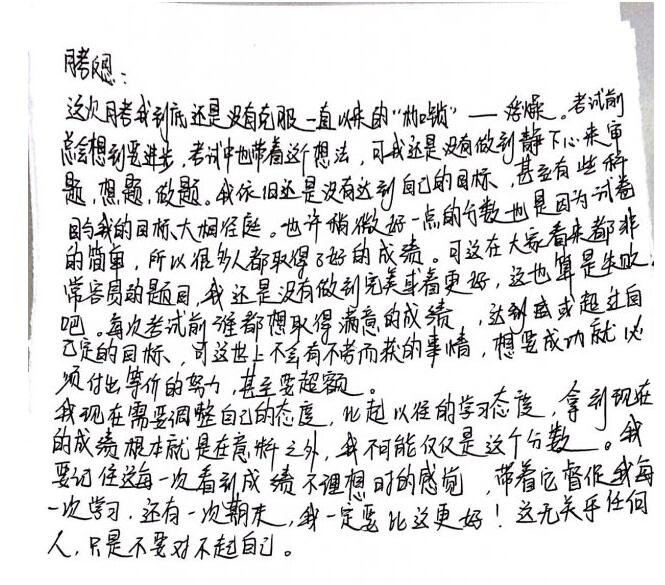 月考反思：
这次月考我到底还是没有克服一直以来的“枷锁”——浮燥。考试前
总会想到要进步，考试中也带着这个想法，可我还是没有做到静下心来审
题，想题，做题。我依旧还是没有达到自己的目标，甚至有些科
目与我的目标大相径庭。也许稍微好一点的分数也是因为试卷
的简单，所以很多人都取得了好的成绩。可这在大家看来都非
常容易的题目，我还是没有做到完美或者更好，这也算是失败
吧。每次考试前谁都想取得满意的成绩，达到或超过自
己定的目标，可这世上不会有不劳而获的事情，想要成功就必
须付出等价的努力，甚至要超额。
我现在需要调整自己的态度，比起以往的学习态度，拿到现在
的成绩根本就是在意料之外，我不可能仅仅是这个分数。我
要记住这每一次看到成绩不理想时的感觉，带着它督促我每
一次学习，还有一次期末，我一定要比这更好！这无关乎任何
人，只是不要对不起自己。